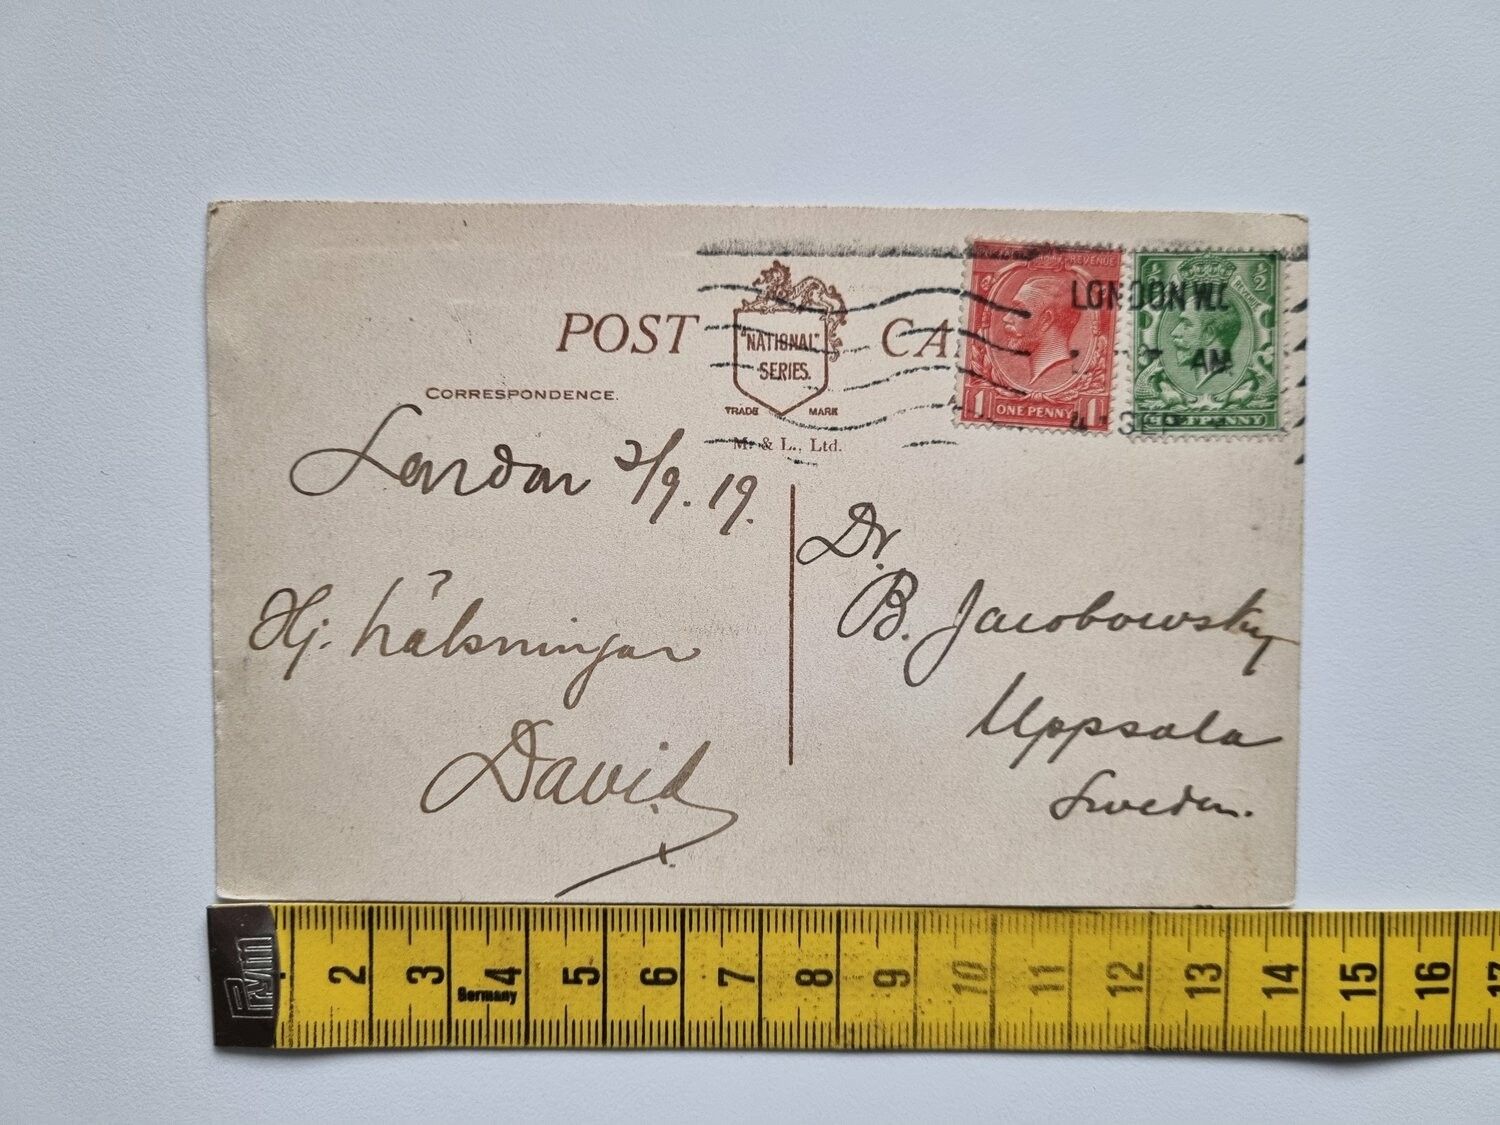 POST CA
"NATIONAL"
SERIES.
TRADE MARK
M. & L., Ltd.
CORRESPONDENCE.
REVENUE
1 ONE PENNY 1
½ ½
HALFPENNY
LONDON W.C
AM
4 SEP
London 3/9. 19.
Hj. hälsningar
David
Dr.
B. Jacobowsky
Uppsala
Sweden.
Prym
2 3 4 5 6 7 8 9 10 11 12 13 14 15 16 17
Germany